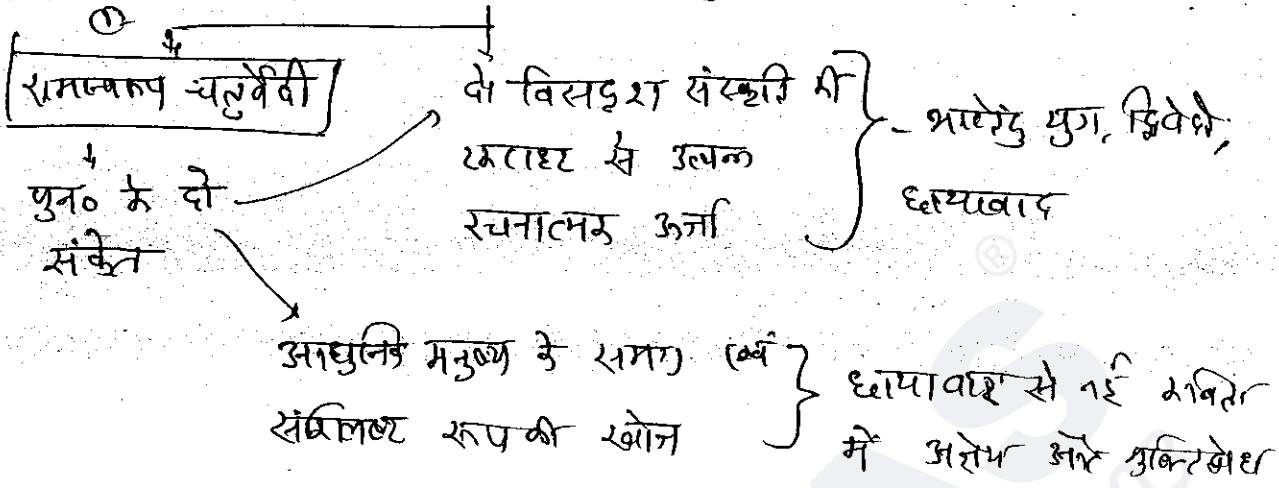 ①
रामस्वरूप चतुर्वेदी
पुन० के दो
संकेत
दो विसदृश संस्कृति की
टकराहट से उत्पन्न
रचनात्मक ऊर्जा
- भारतेंदु युग, द्विवेदी,
छायावाद
आधुनिक मनुष्य के समग्र एवं
संश्लिष्ट रूप की खोज
छायावाद से नई कविता
में अज्ञेय और मुक्तिबोध